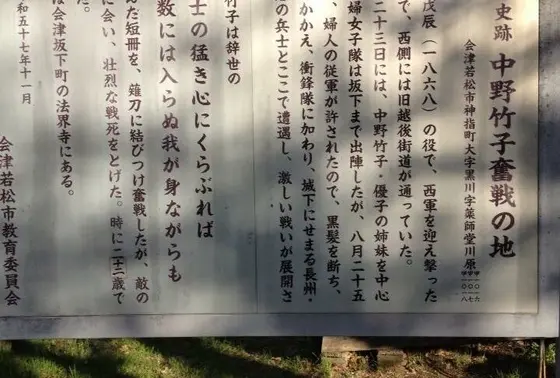 史跡 中野竹子奮戦の地
会津若松市神指町大字黒川字薬師堂川原
戊辰(一八六八)の役で、西軍を迎え撃った
で、西側には旧越後街道が通っていた。
二十三日には、中野竹子・優子の姉妹を中心
婦女子隊は坂下まで出陣したが、八月二十五
、婦人の従軍が許されたので、黒髪を断ち、
かかえ、衝鋒隊に加わり、城下にせまる長州・
の兵士とここで遭遇し、激しい戦いが展開さ
竹子は辞世の
士の猛き心にくらぶれば
数には入らぬ我が身ながらも
んだ短冊を、薙刀に結びつけ奮戦したが、敵の
に会い、壮烈な戦死をとげた。時に二十二歳で
た。
は会津坂下町の法界寺にある。
和五十七年十一月
会津若松市教育委員会